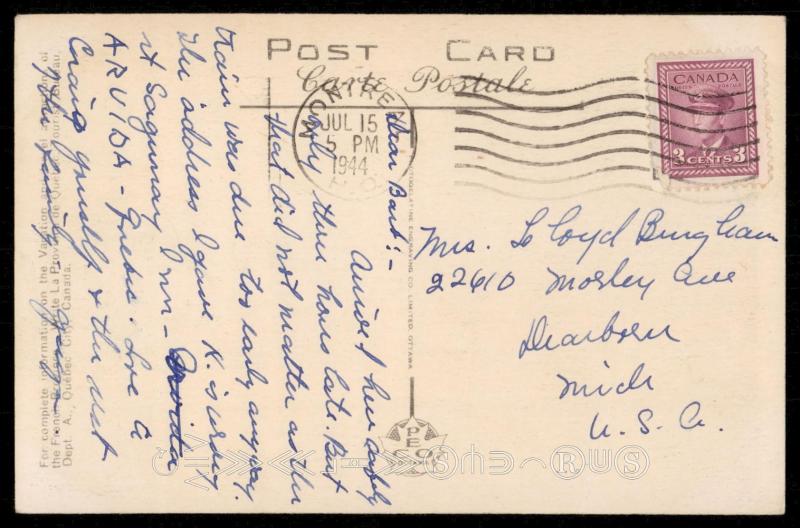 POST CARD
Carte Postale
MONTREAL
JUL 15
5 PM
1944
P.Q.
CANADA
POSTES POSTAGE
3 CENTS 3
Dear Bart! -
Arrived here safely
only three hours late. But
that did not matter as the
train was due too early anyway.
The address I gave K. is wrong
it Saguenay Inn - Arvida
ARVIDA - Quebec. Love to
Craig yourself & the rest
of the family -
Mrs. Lloyd Bingham
22610 Morley Ave
Dearborn
Mich
U.S.A.
For complete information on the Vacation and
the French Province, write La Province de Québec Tourist Bureau,
Dept. A., Québec City, Canada.
PHOTOGELATINE ENGRAVING CO. LIMITED, OTTAWA
PECO